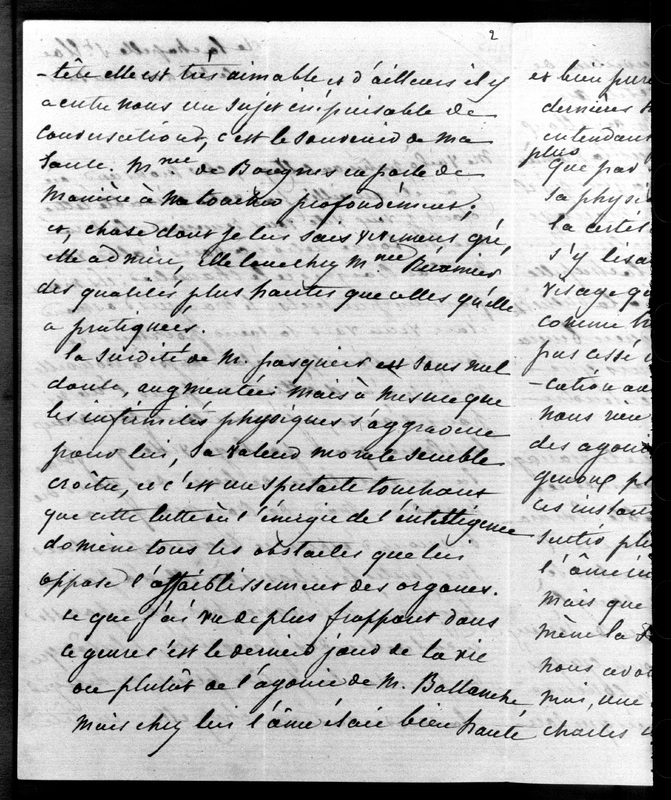 2
-tête elle est très aimable et d'ailleurs il y
a entre nous un sujet inépuisable de
conversations, c'est le souvenir de ma
tante. Mme de Boignes en parle de
manière à me toucher profondément.
et, chose dont je lui sais vivement gré,
elle admire, elle loue chez Mme Récamier
des qualités plus hautes que celles qu'elle
a pratiquées.
la surdité de M. pasquier est sans nul
doute, augmentée mais à mesure que
les infirmités physiques s'aggravent
pour lui, sa valeur morale semble
croître, et c'est un spectacle touchant
que cette lutte où l'énergie de l'intelligence
domine tous les obstacles que lui
oppose l'affaiblissement des organes.
ce que j'ai vu de plus frappant dans
ce genre c'est le dernier jour de la vie
ou plutôt de l'agonie de M. Ballanche
mais chez lui l'âme était bien haute
et bien pure
dernières
entendant
plus
que par
sa physi
la certi
s'y lisa
visage qu
comme
pas cessé
-cation au
nous vien
des agon
genoux p
les instan
sentis plu
l'âme
mais que
même la
nous avo
mais, une
charles